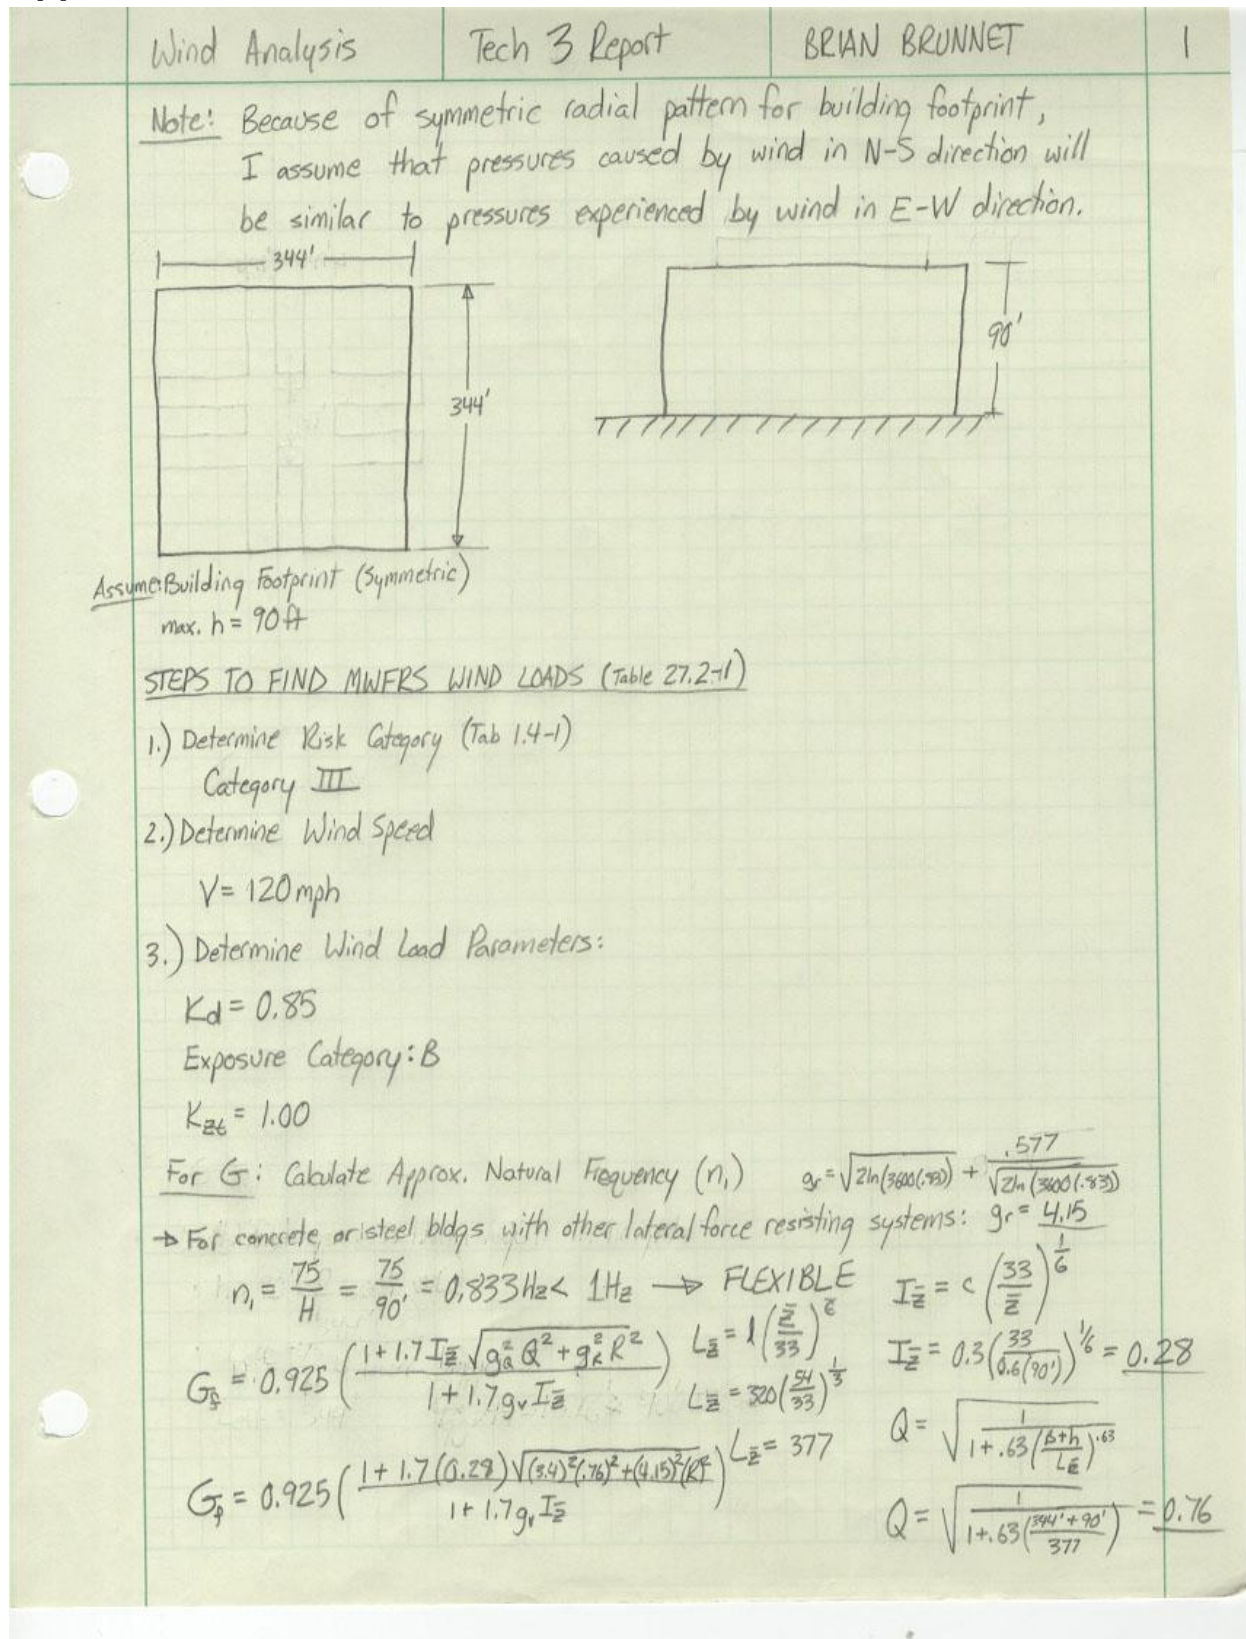 Wind Analysis Tech 3 Report BRIAN BRUNNET 1
Note: Because of symmetric radial pattern for building footprint,
I assume that pressures caused by wind in N-S direction will
be similar to pressures experienced by wind in E-W direction.
344'
344'
90'
Assume: Building Footprint (Symmetric)
max. h = 90 ft
STEPS TO FIND MWFRS WIND LOADS (Table 27.2-1)
1.) Determine Risk Category (Tab 1.4-1)
Category III
2.) Determine Wind Speed
V = 120 mph
3.) Determine Wind Load Parameters:
Kd = 0.85
Exposure Category: B
Kzt = 1.00
For G: Calculate Approx. Natural Frequency (n₁)
gr = √(2ln(3600(.83))) + .577/√(2ln(3600(.83)))
→ For concrete or steel bldgs with other lateral force resisting systems: gr = 4.15
n₁ = 75/H = 75/90' = 0.833 Hz < 1 Hz → FLEXIBLE
Iz̄ = c (33/z̄)^1/6
Gf = 0.925 ((1 + 1.7 Iz̄ √(gQ² Q² + gR² R²))/(1 + 1.7 gv Iz̄))
Lz̄ = l (z̄/33)^ε̄
Iz̄ = 0.3 (33/0.6(90'))^1/6 = 0.28
Lz̄ = 320 (54/33)^1/3
Q = √(1/(1 + .63 (B+h/Lz̄)^.63))
Lz̄ = 377
Gf = 0.925 ((1 + 1.7 (0.28) √((3.4)² (.76)² + (4.15)² (R)²))/(1 + 1.7 gv Iz̄))
Q = √(1/(1 + .63 (344' + 90'/377))) = 0.76